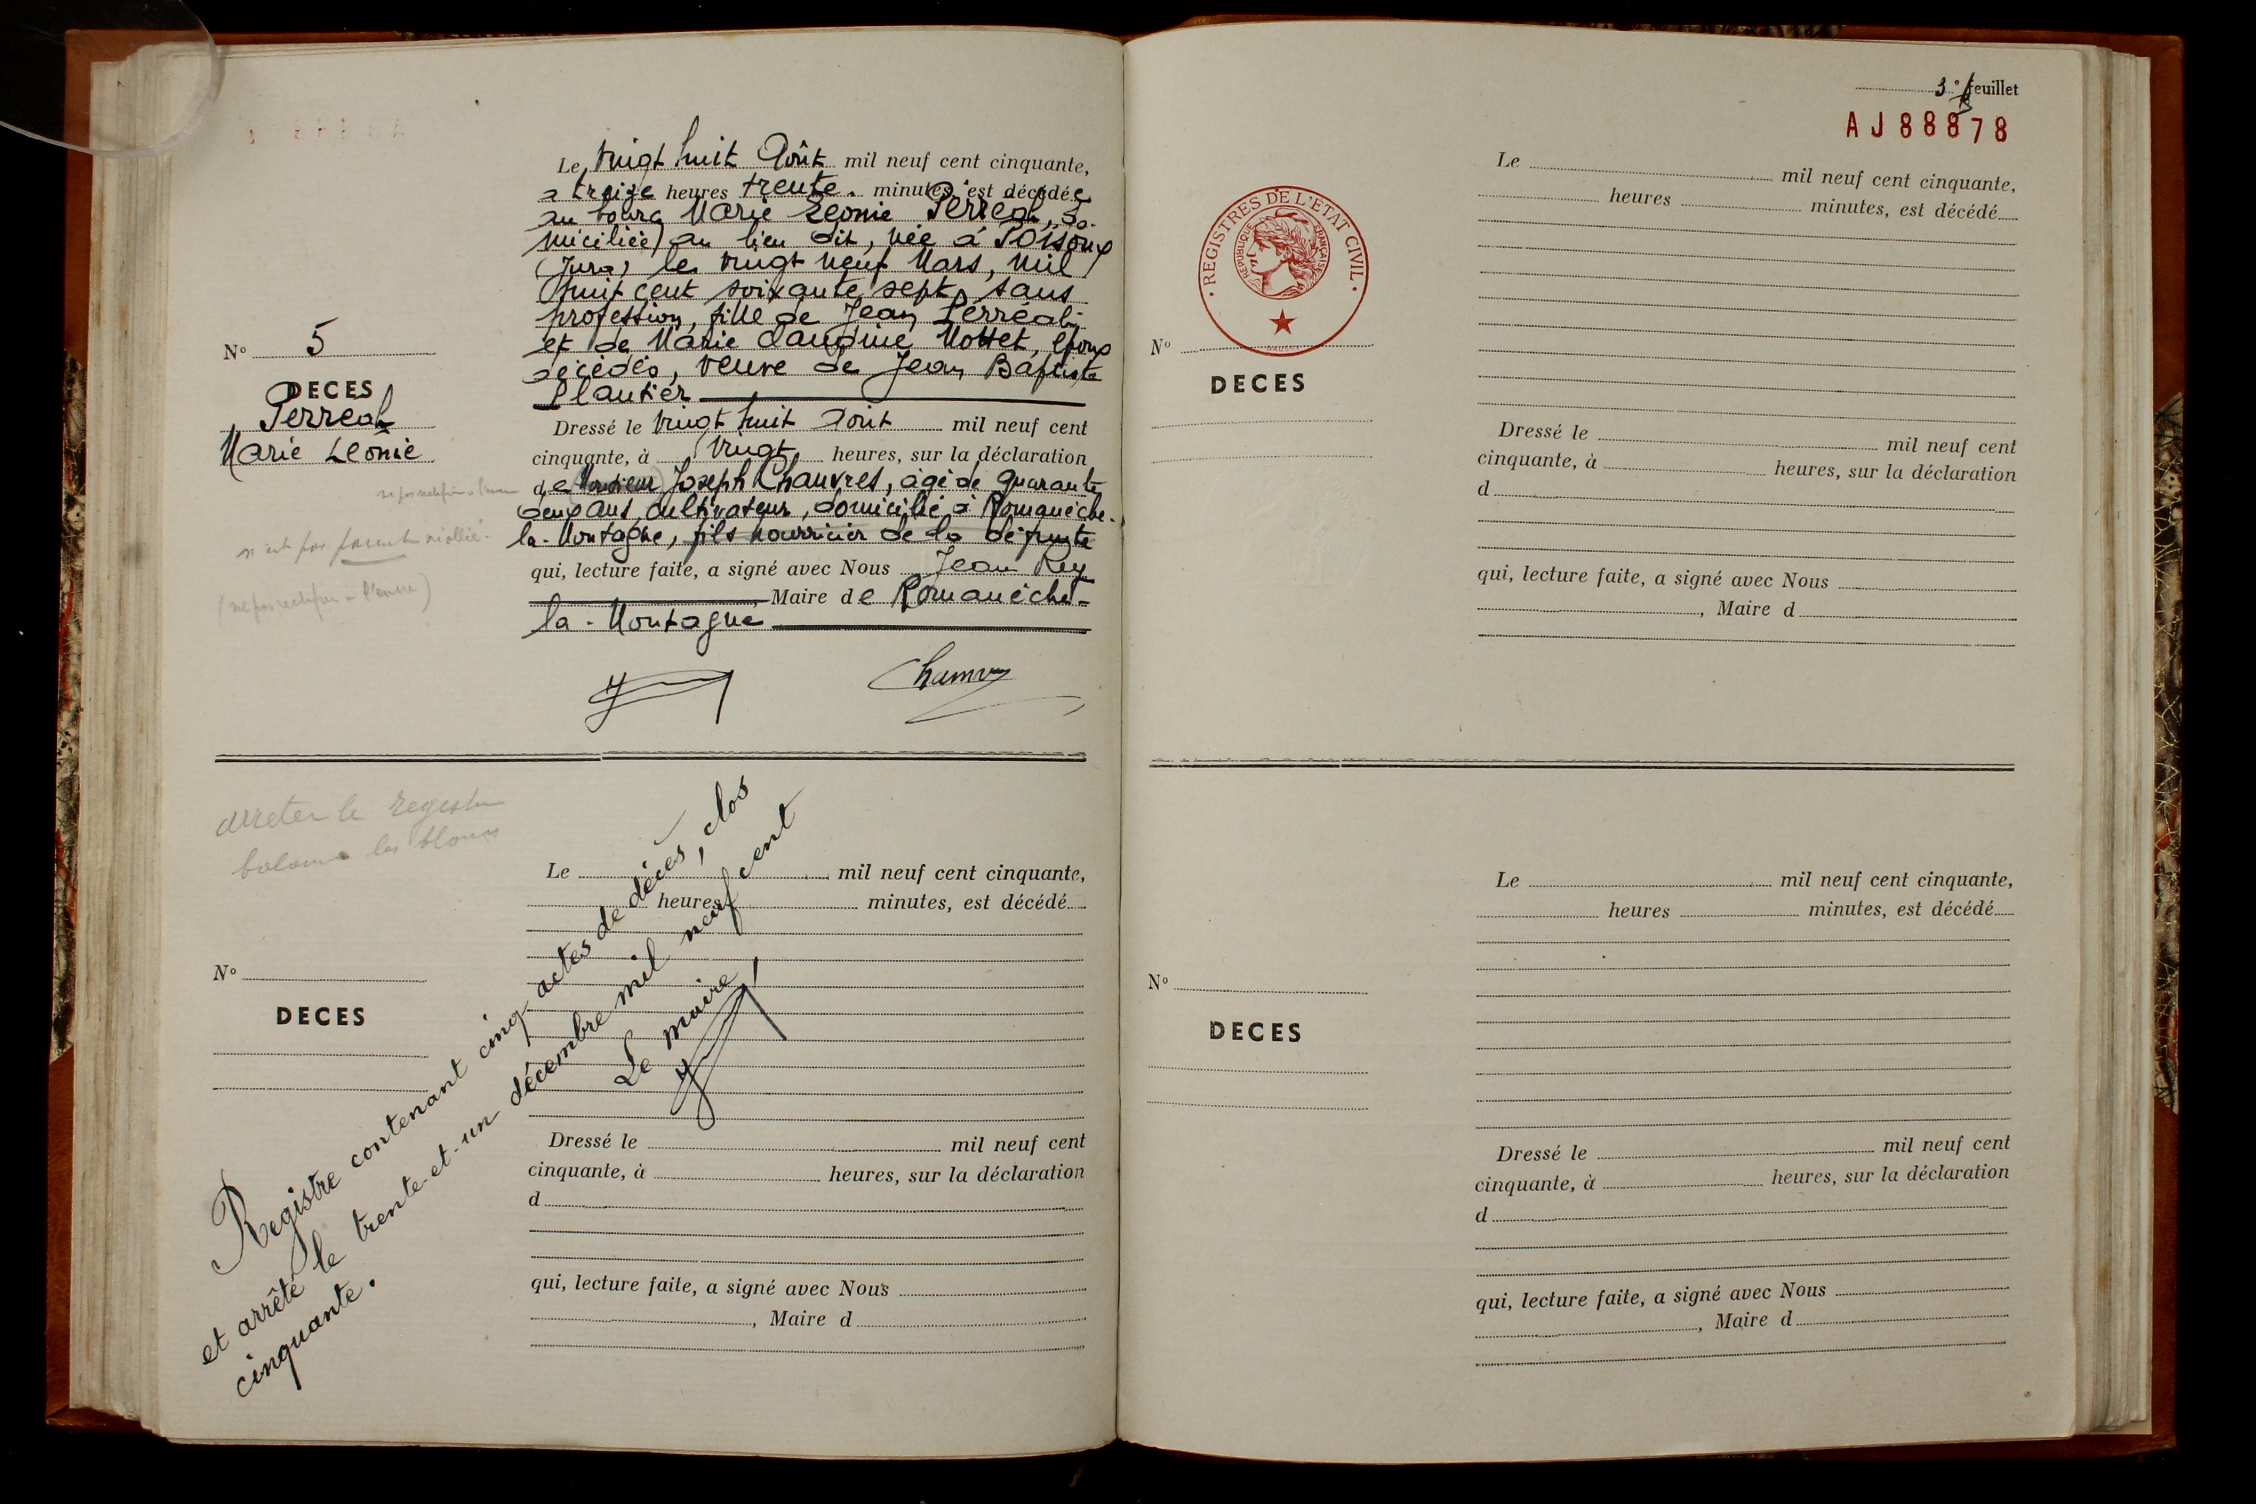 N° 5
DECES
Perréal
Marie Léonie
Le vingt huit Août mil neuf cent cinquante,
a treize heures trente minutes est décédée
au bourg Marie Léonie Perréal, do-
miciliée au lieu dit, née à Poisoux
(Jura) le vingt neuf Mars, mil
huit cent soixante sept, sans
profession, fille de Jean Perréal
et de Marie Claudine Mottet, époux
décédés, veuve de Jean Baptiste
Plantier
Dressé le vingt huit Août mil neuf cent
cinquante, à vingt heures, sur la déclaration
de Monsieur Joseph Chauvres, âgé de quarante
deux ans, cultivateur, domicilié à Romanèche-
la-Montagne, fils nourricier de la défunte
qui, lecture faite, a signé avec Nous Jean Rey
Maire de Romanèche-
la-Montagne
n'est pas parent ni allié
arreter le registre
Le mil neuf cent cinquante,
heures minutes, est décédé
N°
DECES
Dressé le mil neuf cent
cinquante, à heures, sur la déclaration
d
qui, lecture faite, a signé avec Nous
, Maire d
Registre contenant cinq actes de décès, clos
et arrêté le trente-et-un décembre mil neuf cent
cinquante.
Le maire,
3e feuillet
AJ88878
REGISTRES DE L'ETAT CIVIL
REPUBLIQUE FRANÇAISE
N°
DECES
Le mil neuf cent cinquante,
heures minutes, est décédé
Dressé le mil neuf cent
cinquante, à heures, sur la déclaration
d
qui, lecture faite, a signé avec Nous
, Maire d
N°
DECES
Le mil neuf cent cinquante,
heures minutes, est décédé
Dressé le mil neuf cent
cinquante, à heures, sur la déclaration
d
qui, lecture faite, a signé avec Nous
, Maire d